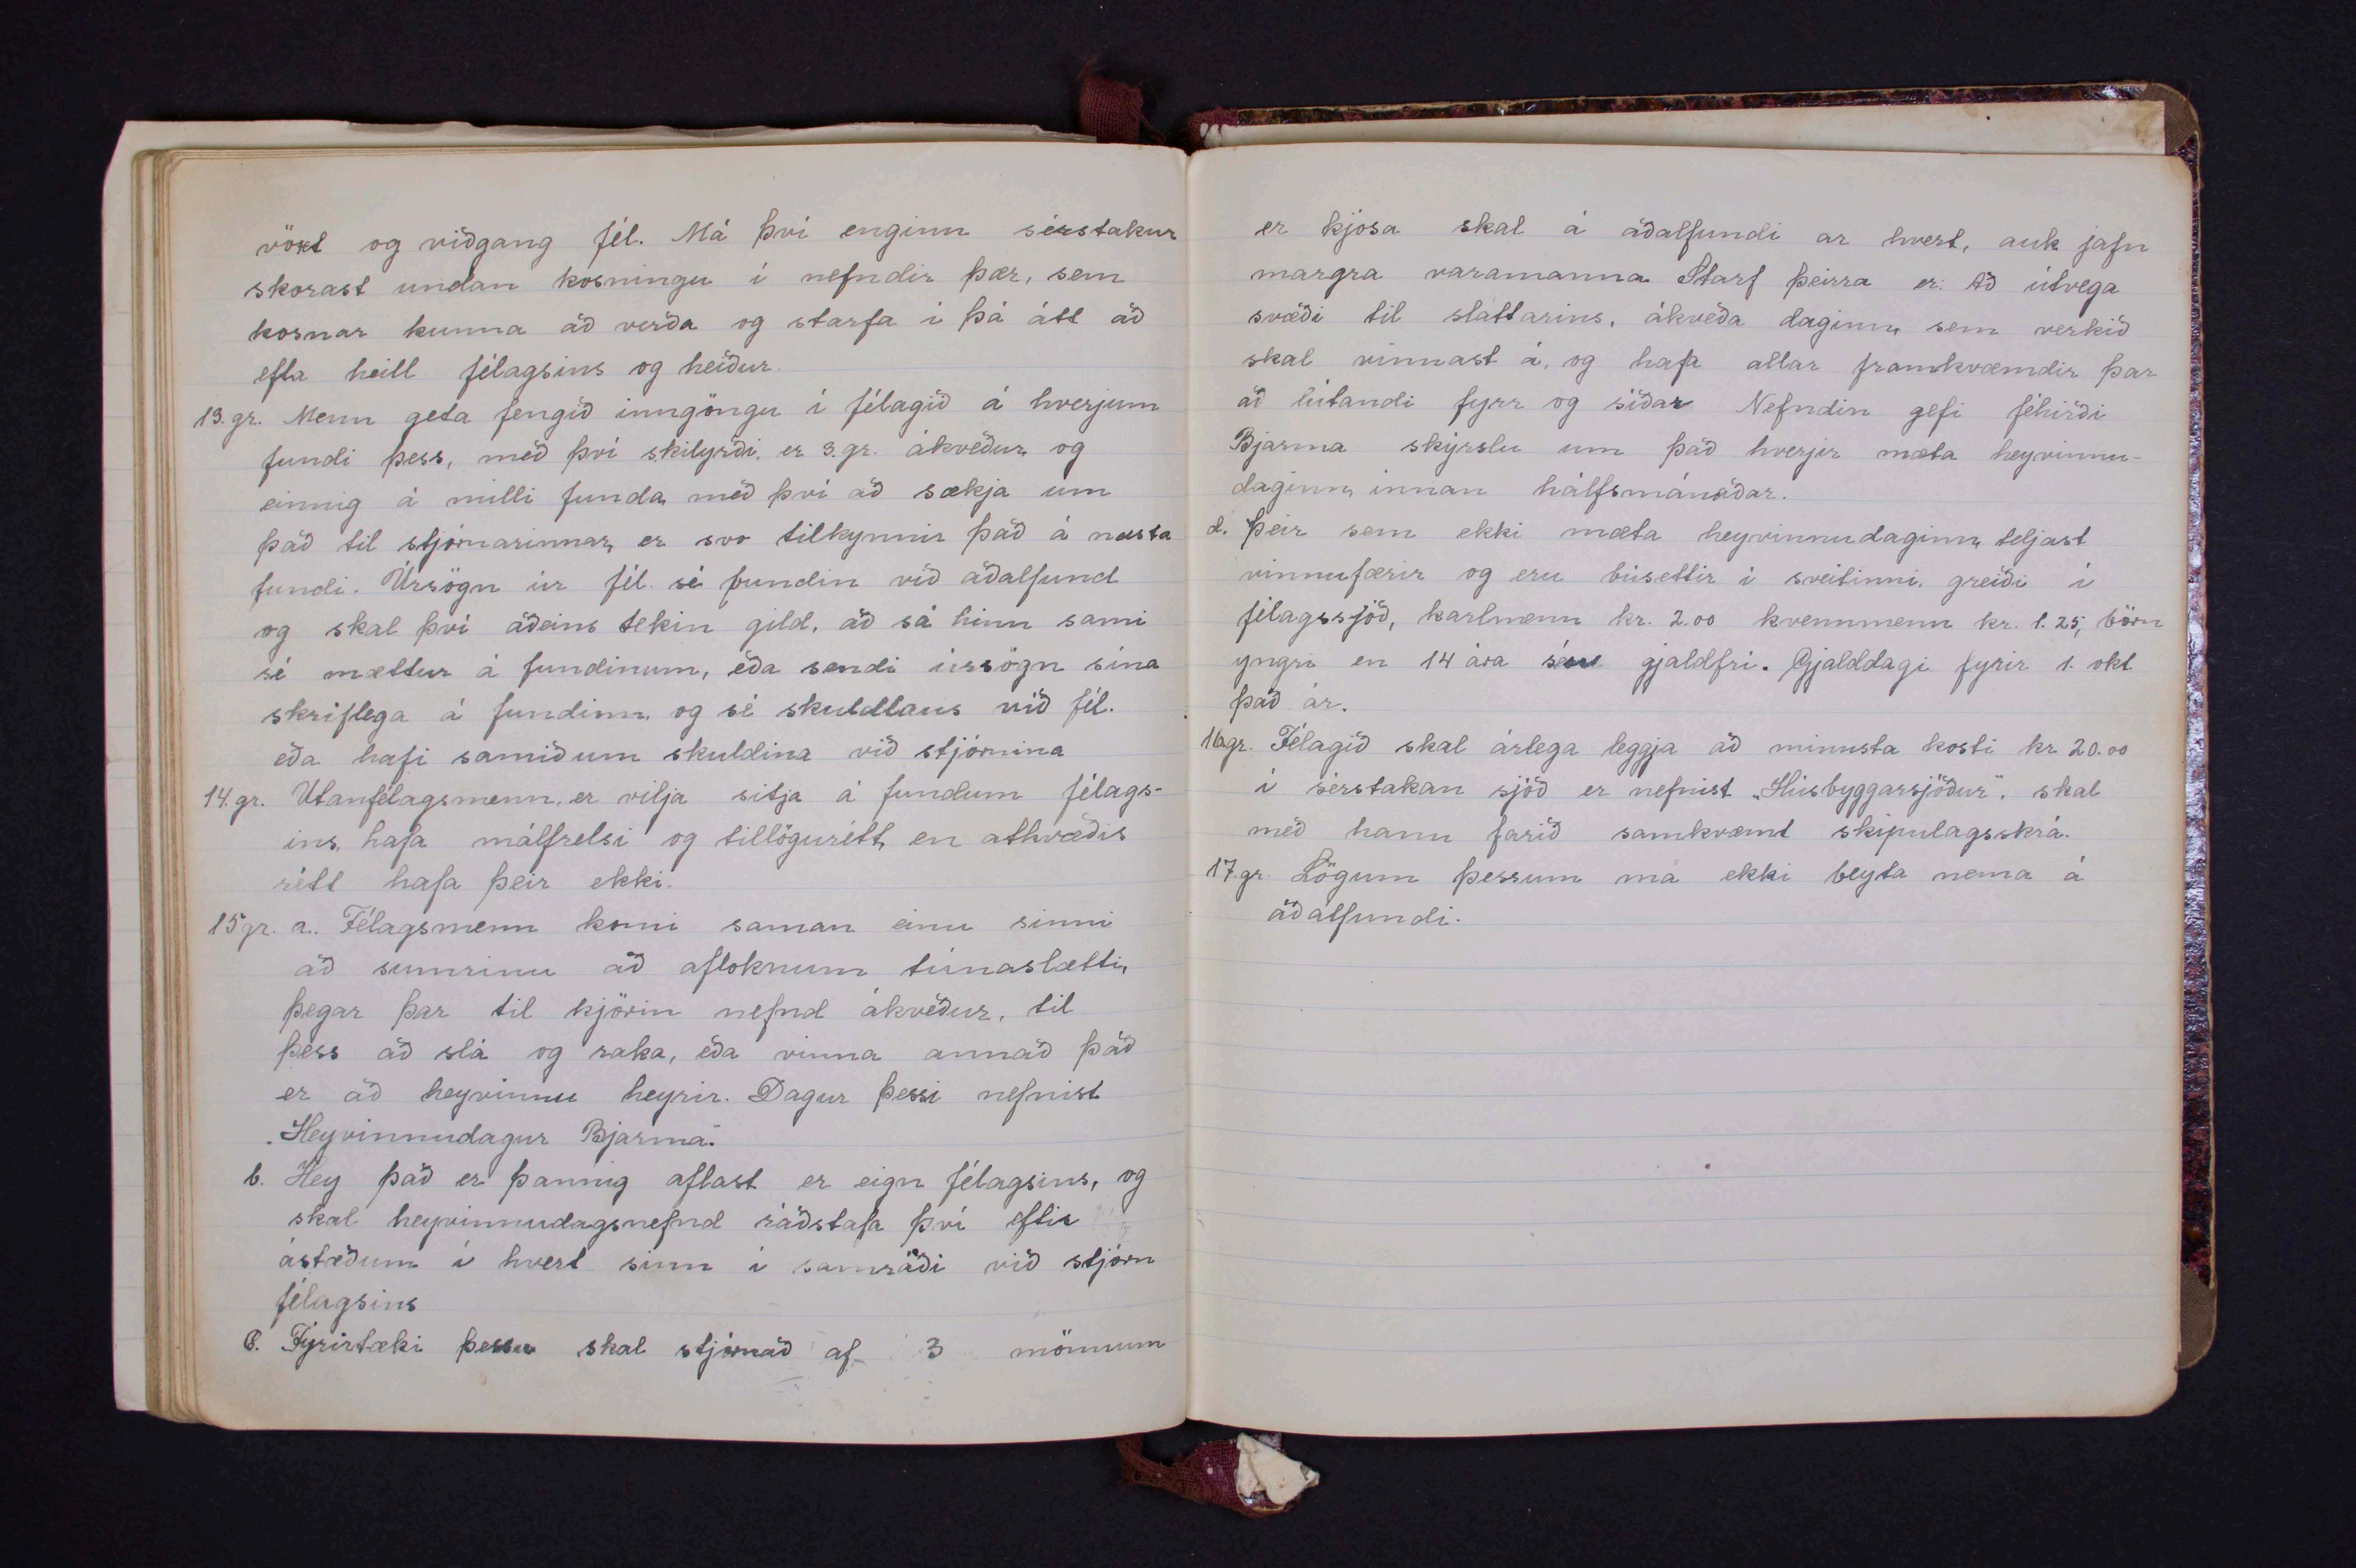 vöxt og viðgang fél. Má því enginn sérstakur
skorast undan kosningu í nefndir þær, sem
kosnar kunna að verða og starfa í þá átt að
efla heill félagsins og heiður.
13. gr. Menn geta fengið inngöngu í félagið á hverjum
fundi þess, með því skilyrði, er 3. gr. ákveður, og
einnig á milli funda, með því að sækja um
það til stjórnarinnar, er svo tilkynnir það á næsta
fundi. Úrsögn úr fél. sé bundin við aðalfund
og skal því aðeins tekin gild, að sá hinn sami
sé mættur á fundinum, eða sendi úrsögn sína
skriflega á fundinn, og sé skuldlaus við fél.
eða hafi samið um skuldina við stjórnina
14. gr. Utanfélagsmenn, er vilja sitja á fundum félags-
ins, hafa málfrelsi og tillögurétt, en athvæðis
rétt hafa þeir ekki.
15 gr. a. Félagsmenn komi saman einu sinni
að sumrinu að afloknum túnaslætti,
þegar þar til kjörin nefnd ákveður, til
þess að slá og raka, eða vinna annað það
er að heyvinnu heyrir. Dagur þessi nefnist
„Heyvinnudagur Bjarma".
b. Hey það er þannig aflast er eign félagsins, og
skal heyvinnudagsnefnd ráðstafa því eftir
ástæðum í hvert sinn í samráði við stjórn
félagsins
C. Fyrirtæki þessu skal stjórnað af 3 mönnum
er kjósa skal á aðalfundi ar hvert, auk jafn
margra varamanna. Starf þeirra er: Að útvega
svæði til sláttarins, ákveða daginn, sem verkið
skal vinnast á, og hafa allar framkvæmdir þar
að lútandi fyrr og síðar Nefndin gefi féhirði
Bjarma skýrslu um það hverjir mæta heyvinnu-
daginn, innan hálfsmánaðar.
d. Þeir sem ekki mæta heyvinnudaginn, teljast
vinnufærir og eru búsettir í sveitinni, greiði í
félagssjóð, karlmenn kr. 2.00 kvennmenn kr. 1.25, börn
yngri en 14 ára séu gjaldfrí. Gjalddagi fyrir 1. okt
það ár.
16 gr. Félagið skal árlega leggja að minnsta kosti kr 20.00
í sérstakan sjóð er nefnist „Húsbyggarsjóður", skal
með hann farið samkvæmt skipulagsskrá.
17. gr. Lögum þessum má ekki beyta nema á
aðalfundi.